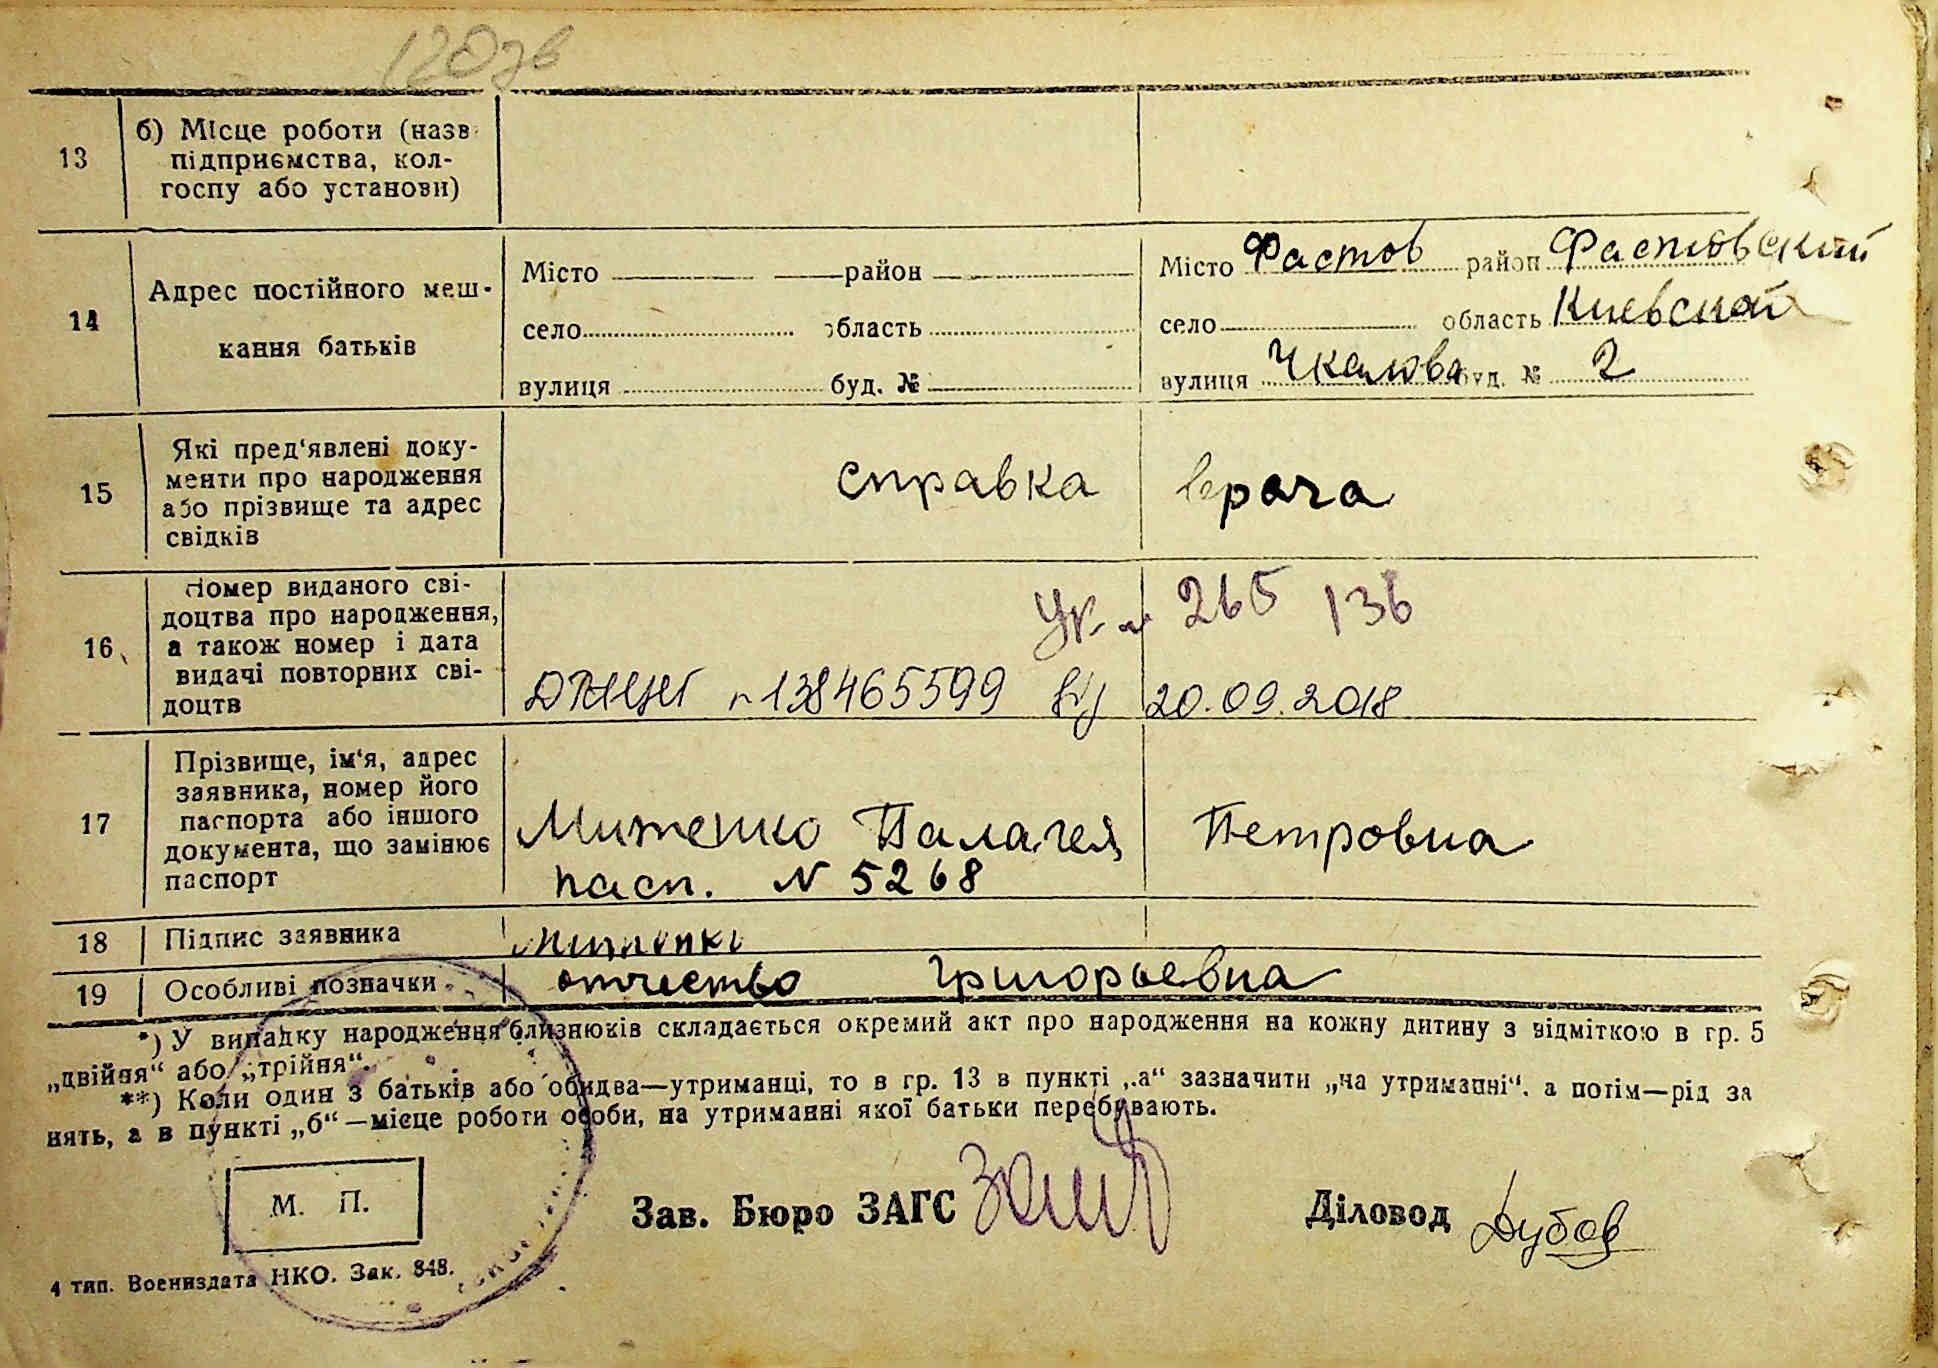 13
б) Місце роботи (назв
підприємства, кол-
госпу або установи)
14
Адрес постійного меш-
кання батьків
Місто район
село область
вулиця буд. №
Місто Фастов район Фастовский
село область Киевской
вулиця Чкалова буд. № 2
15
Які пред'явлені доку-
менти про народження
або прізвище та адрес
свідків
справка врача
16
Номер виданого сві-
доцтва про народження,
а також номер і дата
видачі повторних сві-
доцтв
265 136
138465599 20.09.2018
17
Прізвище, ім'я, адрес
заявника, номер його
паспорта або іншого
документа, що замінює
паспорт
Митенко Палагея Петровна
пасп. N 5268
18
Підпис заявника
19
Особливі позначки
отчество Григорьевна
*) У випадку народження близнюків складається окремий акт про народження на кожну дитину з відміткою в гр. 5
„двійня“ або „трійня“.
**) Коли один з батьків або обидва—утриманці, то в гр. 13 в пункті „а“ зазначити „на утриманні“, а потім—рід за
нять, а в пункті „б“—місце роботи особи, на утриманні якої батьки перебувають.
М. П.
Зав. Бюро ЗАГС
Діловод Дубов
4 тип. Воениздата НКО. Зак. 848.